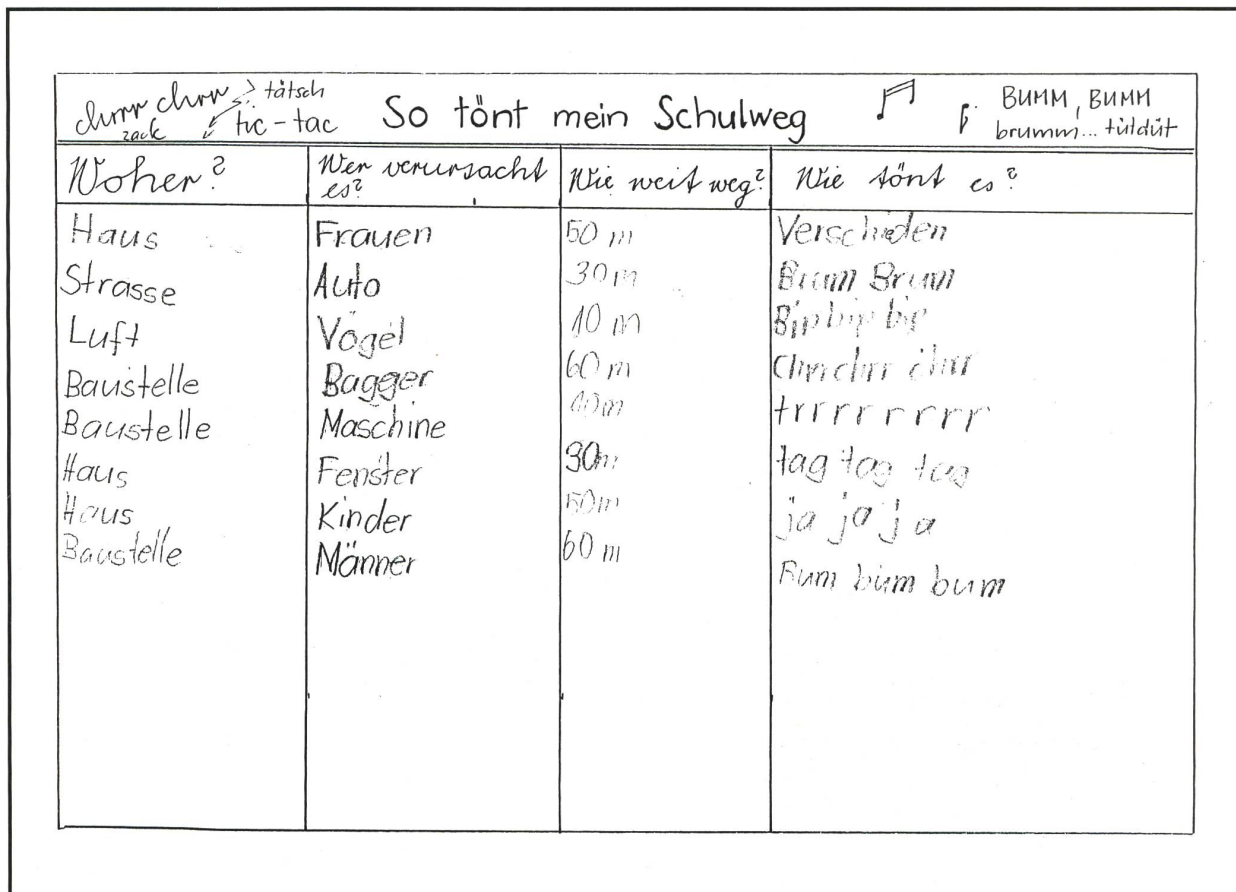 churr churr tätsch
zack tic-tac
So tönt mein Schulweg
BUMM, BUMM
brumm... tüüdüt
Woher? Wer verursacht es? Wie weit weg? Wie tönt es?
Haus Frauen 50 m Verschiden
Strasse Auto 30 m Brum Brum
Luft Vögel 10 m Bip bip bip
Baustelle Bagger 60 m Chrr chrr chrr
Baustelle Maschine 10 m trrrrrrrr
Haus Fenster 30m tag tag tag
Haus Kinder 50m ja ja ja
Baustelle Männer 60 m Bum bum bum